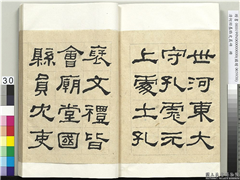 世河東大
守孔彪元
上處士孔
褒文禮皆
會廟堂國
縣員冗吏
30